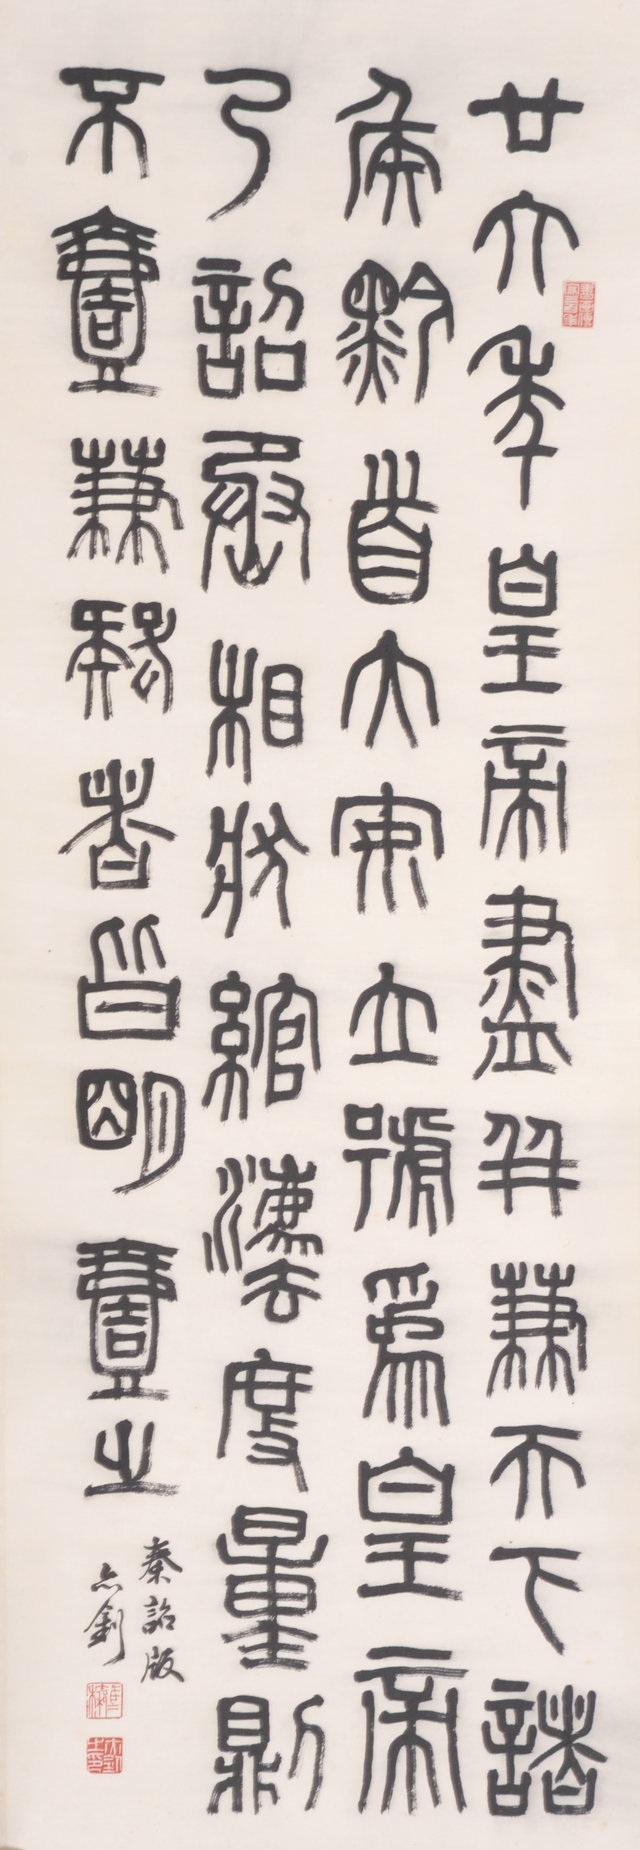 廿六年皇帝盡并兼天下諸
矦黔首大安立號爲皇帝
乃詔丞相狀綰灋度量則
不壹歉疑者皆明壹之
秦詔版
亦釗